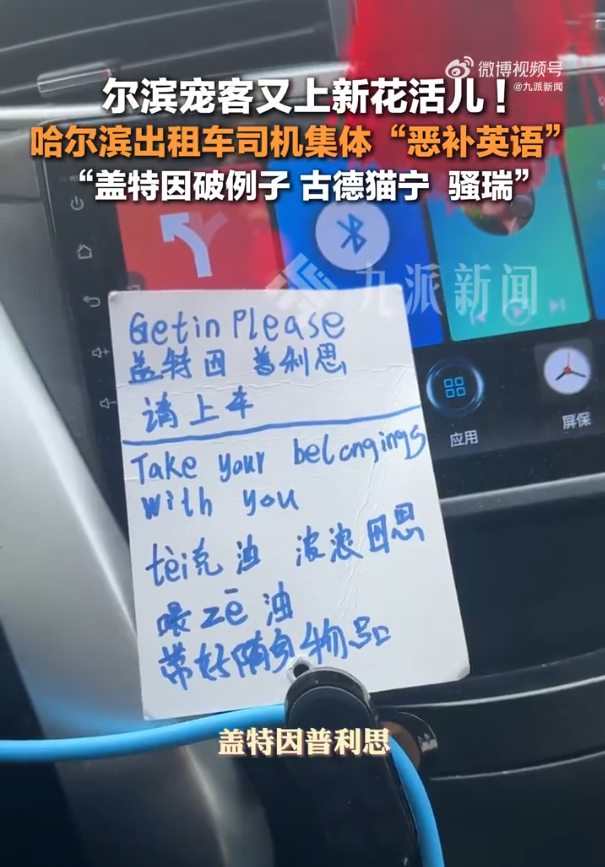 微博视频号
@九派新闻
尔滨宠客又上新花活儿！
哈尔滨出租车司机集体“恶补英语”
“盖特因破例子 古德猫宁 骚瑞”
九派新闻
Getin Please
盖特因 普利思
请上车
Take your belongings
with you
tèi克 油 波浪因思
喂zē油
带好随身物品
应用
屏保
盖特因普利思